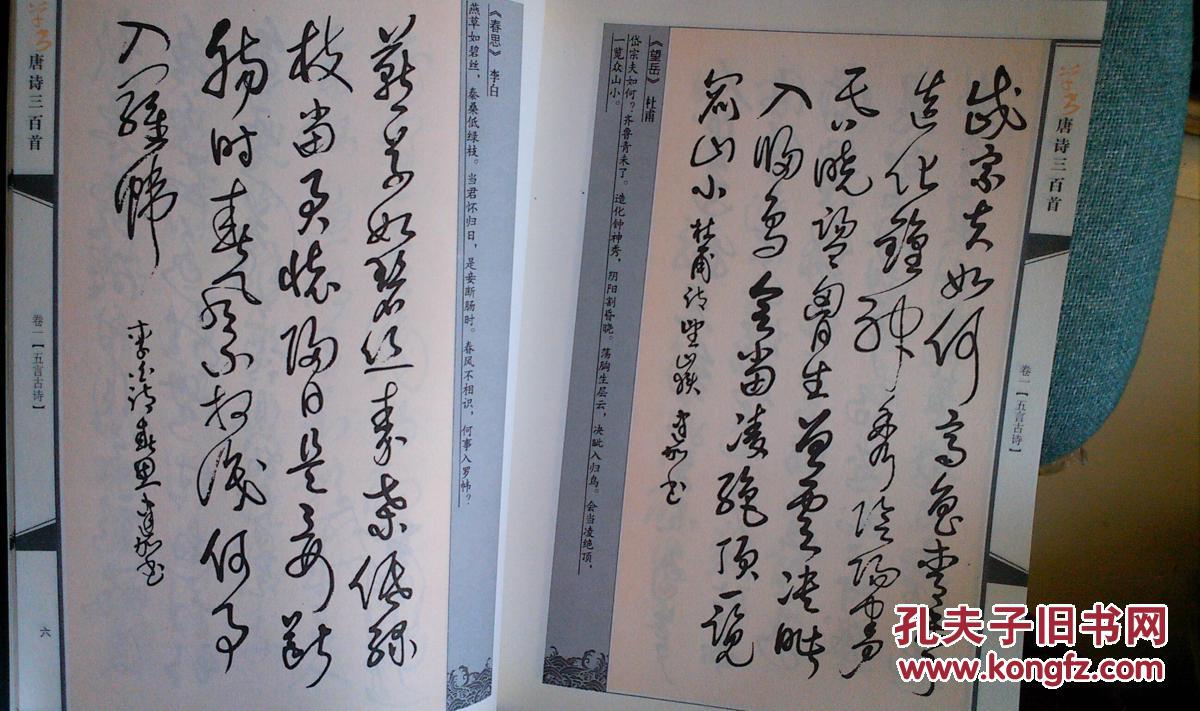 草书唐诗三百首
卷一【五言古诗】
《望岳》 杜甫
岱宗夫如何?齐鲁青未了。造化钟神秀,阴阳割昏晓。荡胸生层云,决眦入归鸟。会当凌绝顶,
一览众山小。
岱宗夫如何齐鲁青未了
造化钟神秀阴阳割
昏晓荡胸生层云决眦
入归鸟会当凌绝顶一览
众山小
杜甫诗望岳
《春思》 李白
燕草如碧丝,秦桑低绿枝。当君怀归日,是妾断肠时。春风不相识,何事入罗帏?
燕草如碧丝秦桑低绿
枝当君怀归日是妾断
肠时春风不相识何事
入罗帏
李白诗春思
草书唐诗三百首
卷一【五言古诗】
六
孔夫子旧书网
www.kongfz.com